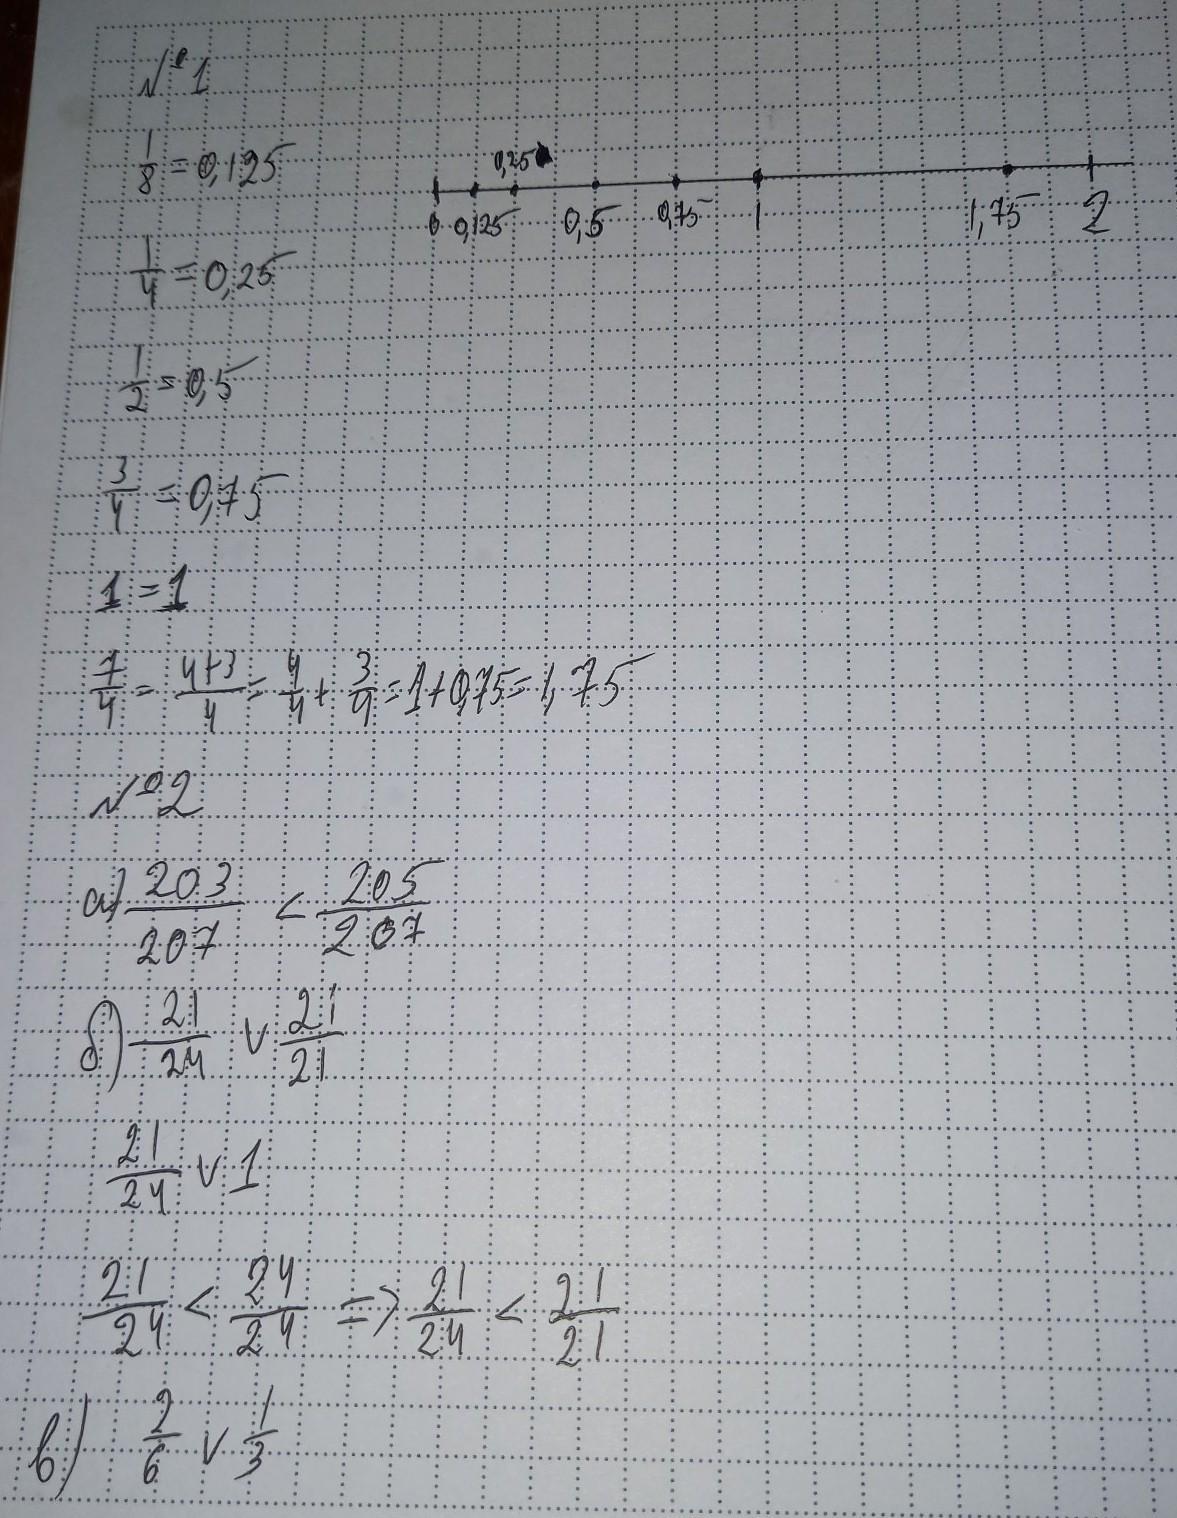 №1
1/8 = 0,125
0,25
0 0,125 0,5 0,75 1 1,75 2
1/4 = 0,25
1/2 = 0,5
3/4 = 0,75
1 = 1
7/4 = (4+3)/4 = 4/4 + 3/4 = 1+0,75 = 1,75
№2
а) 203/207 < 205/207
б) 21/24 ∨ 21/21
21/24 ∨ 1
21/24 < 24/24 => 21/24 < 21/21
в) 2/6 ∨ 1/3